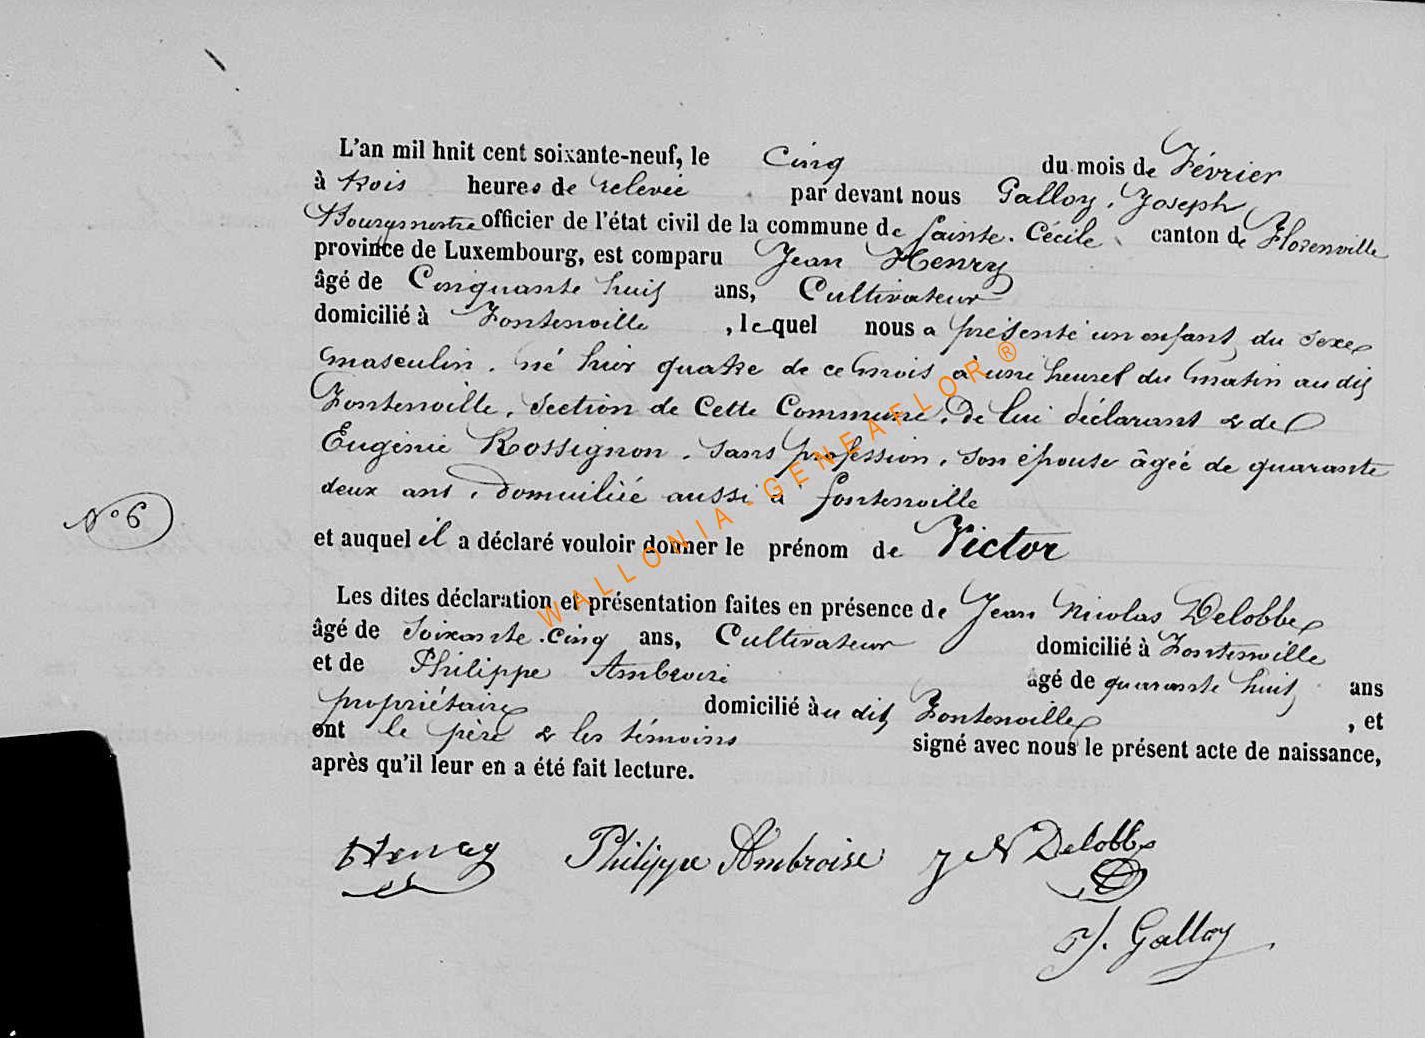 L'an mil hnit cent soixante-neuf, le Cinq du mois de Février
à trois heures de relevée par devant nous Galloy, Joseph,
Bourgmestre officier de l'état civil de la commune de Sainte-Cécile, canton de Florenville
province de Luxembourg, est comparu Jean Henry
âgé de Cinquante huit ans, Cultivateur
domicilié à Fontenoille, lequel nous a présenté un enfant du sexe
masculin, né hier quatre de ce mois à une heure du matin au dit
Fontenoille, section de cette Commune, de lui déclarant & de
Eugénie Rossignon, sans profession, son épouse âgée de quarante
deux ans, domiciliée aussi à fontenoille
N° 6
et auquel il a déclaré vouloir donner le prénom de Victor
Les dites déclaration et présentation faites en présence de Jean Nicolas Delobbe
âgé de soixante-cinq ans, Cultivateur domicilié à Fontenoille
et de Philippe Ambroise âgé de quarante huit ans
propriétaire domicilié au dit Fontenoille, et
ont le père & les témoins signé avec nous le présent acte de naissance,
après qu'il leur en a été fait lecture.
Henry Philippe Ambroise J N Delobbe
J. Galloy
WALLONIA-GENEAFLOR®